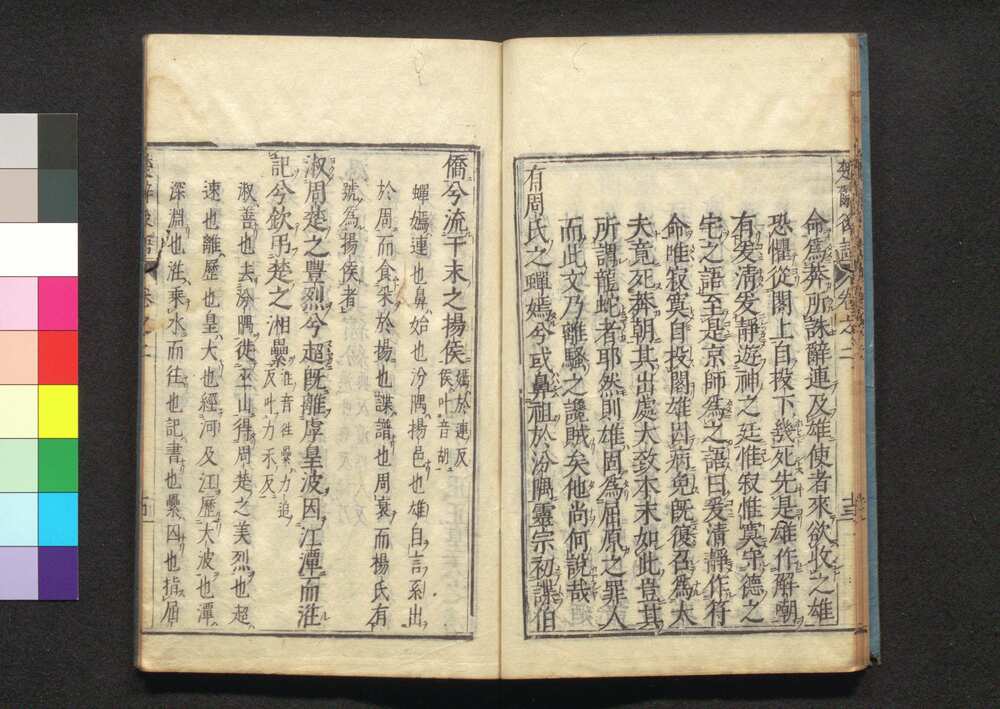 命爲莽所誅辭連及雄使者來欲收之雄
恐懼從閣上自投下幾死先是雄作解嘲
有爰清爰靜遊神之廷惟寂惟寞守德之
宅之語至是京師爲之語曰爰清靜作符
命唯寂寞自投閣雄因病免既復召爲大
夫竟死莽朝其出處大致本末如此豈其
所謂龍蛇者耶然則雄固爲屈原之罪人
而此文乃離騷之讒賊矣他尚何說哉
有周氏之蟬嫣兮或鼻祖於汾隅靈宗初諜伯
僑兮流于末之揚侯嫣於連反侯叶音胡
蟬嫣連也鼻始也汾隅揚邑也雄自言系出
於周而食采於揚也諜譜也周衰而楊氏有
號爲揚侯者
淑周楚之豐烈兮超既離虖皇波因江潭而淮
記兮欽弔楚之湘纍淮音往纍力追反叶力禾反
淑善也去汾隅徙巫山得周楚之美烈也超
速也離歷也皇大也經河及江歷大波也潭
深淵也淮乘水而往也記書也纍囚也指屈